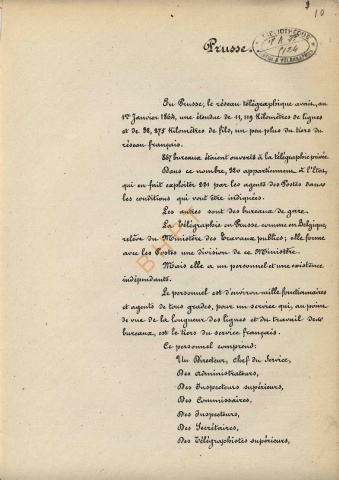 10
Prusse.
BIBLIOTHÈQUE
En Prusse, le réseau télégraphique avait, au
1er Janvier 1864, une étendue de 11,119 Kilomètres de lignes
et de 38,275 Kilomètres de fils, un peu plus du tiers du
réseau français.
867 bureaux étaient ouverts à la télégraphie privée
Dans ce nombre, 320 appartiennent à l'État,
qui en fait exploiter 231 par les agents des Postes dans
les conditions qui vont être indiquées.
Les autres sont des bureaux de gare.
La Télégraphie en Prusse comme en Belgique,
relève du Ministère des travaux publics; elle forme
avec les Postes une division de ce Ministère.
Mais elle a un personnel et une existence
indépendants.
Le personnel est d'environ mille fonctionnaires
et agents de tous grades, pour un service qui, au point
de vue de la longueur des lignes et du travail des
bureaux, est le tiers du service français.
Ce personnel comprend:
Un Directeur, Chef du Service,
Des Administrateurs,
Des Inspecteurs supérieurs,
Des Commissaires,
Des Inspecteurs,
Des Secrétaires,
Des Télégraphistes supérieurs,